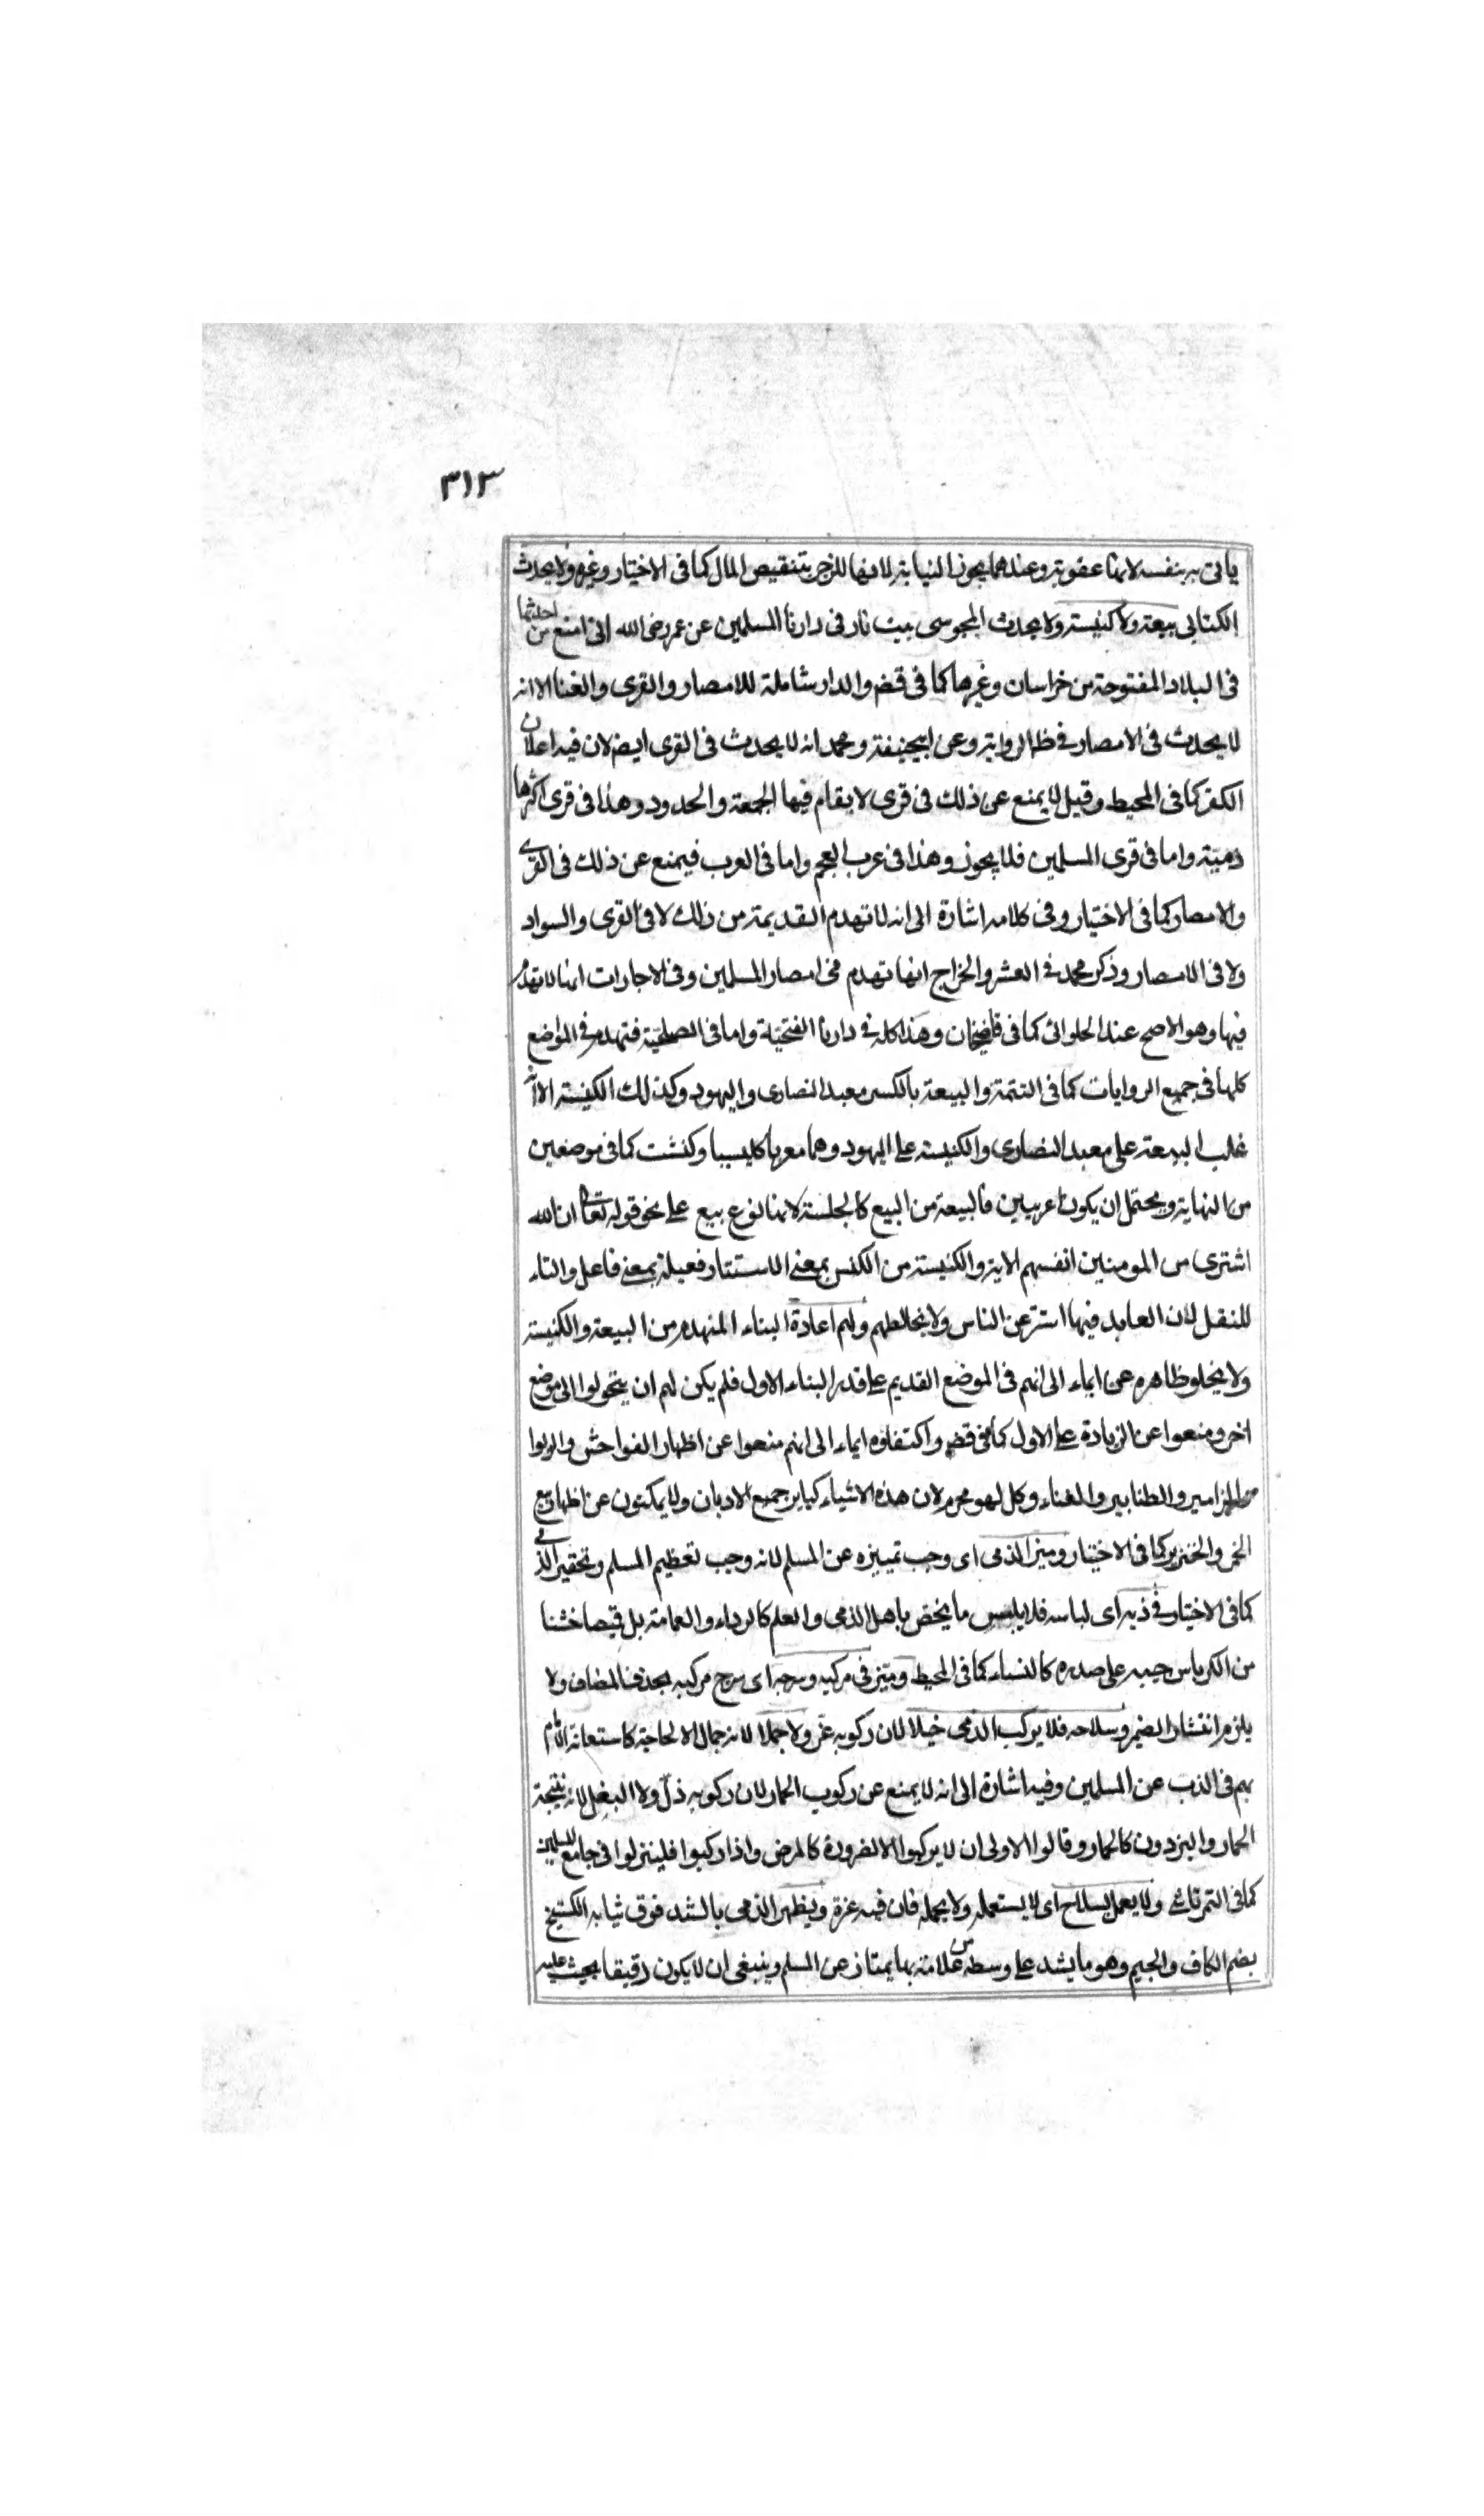 ٣١٣
ياتى به بنفسه لانها عقوبة وعندهما يجوز النيابة لانها للزجر بتنقيص المال كما فى الاختيار وغيره ولا يحدث
الكتابى بيعة ولا كنيسة ولا يحدث المجوسى بيت نار فى دارنا المسلمين عن عمر رضى الله انى امنع من احداثها
فى البلاد المفتوحة من خراسان وغيرها كما فى قض والدار شاملة للامصار والقرى والفنا الا انه
لا يحدث فى الامصار فى ظ الرواية وعن ابيحنيفة ومحمد انه لا يحدث فى القرى ايض لان فيه اعلان
الكفر كما فى المحيط وقيل لا يمنع عن ذلك فى قرى لا يقام فيها الجمعة والحدود وهذا فى قرى اكثرها
ذمية واما فى قرى المسلمين فلا يجوز وهذا فى عرب العجم واما فى العرب فيمنع عن ذلك فى القرى
والامصار كما فى الاختيار وفى كلامه اشارة الى انه لا تهدم القديمة من ذلك لا فى القرى والسواد
ولا فى الامصار وذكر محمد فى العشر والخراج انها تهدم فى امصار المسلمين وفى الاجارات انها لا تهدم
فيها وهو الاصح عند الحلوائى كما فى قاضيخان وهذا كله فى دارنا الفتحية واما فى الصلحية فتهدم فى المواضع
كلها فى جميع الروايات كما فى التتمة والبيعة بالكسر معبد النصارى واليهود وكذلك الكنيسة الا انه
غلب البيعة على معبد النصارى والكنيسة على اليهود وهما معربا كليسيا وكنشت كما فى موضعين
من النهاية ويحتمل ان يكونا عربيين فالبيعة من البيع كالجلسة لانها نوع بيع على نحو قوله تعا ان الله
اشترى من المومنين انفسهم الاية والكنيسة من الكنس بمعنى الاستتار فعيلة بمعنى فاعل والتاء
للنقل لان العابد فيها استتر عن الناس ولا يخالطهم ولهم اعادة البناء المنهدم من البيعة والكنيسة
ولا يخلو ظاهره عن ايماء الى انهم فى الموضع القديم على قدر البناء الاول فلم يكن لهم ان يتحولوا الى موضع
اخر ومنعوا عن الزيادة على الاول كما فى قض واكتفاؤه ايماء الى انهم منعوا عن اظهار الفواحش والربوا
والمزامير والطنابير والغناء وكل لهو محرم لان هذه الاشياء كباير جميع الاديان ولا يمكنون عن اظهار بيع
الخمر والخنزير كما فى الاختيار وميز الذمى اى وجب تمييزه عن المسلم لانه وجب تعظيم المسلم وتحقير الذمى
كما فى الاختيار فى زيه اى لباسه فلا يلبس ما يخص باهل الذمى والعلم كالرداء والعمامة بل قميصا خشنا
من الكرباس جيبه على صدره كالنساء كما فى المحيط ويتميز فى مركبه وسرجه اى سرج مركبه بحذف المضاف ولا
يلزم انتشار الضمير وسلاحه فلا يركب الذمى خيلا لان ركوبه عز ولا جملا لانه جمال الا لحاجة كاستعانة الامام
بهم فى الذب عن المسلمين وفيه اشارة الى انه لا يمنع عن ركوب الحمار لان ركوبه ذل ولا البغل لانه نتيجة
الحمار والبرذون كالحمار وقالوا الاولى ان لا يركبوا الا لضرورة كالمرض واذا ركبوا فلينزلوا فى جامع المسلمين
كما فى التمرتاشى ولا يعمل بسلاح اى لا يستعمله ولا يحمله فان فيه عزة ويظهر الذمى بالشد فوق ثيابه الكستيج
بضم الكاف والجيم وهو ما يشد على وسطه من علامة بها يمتاز عن المسلم وينبغى ان لا يكون رقيقا بحيث عليه